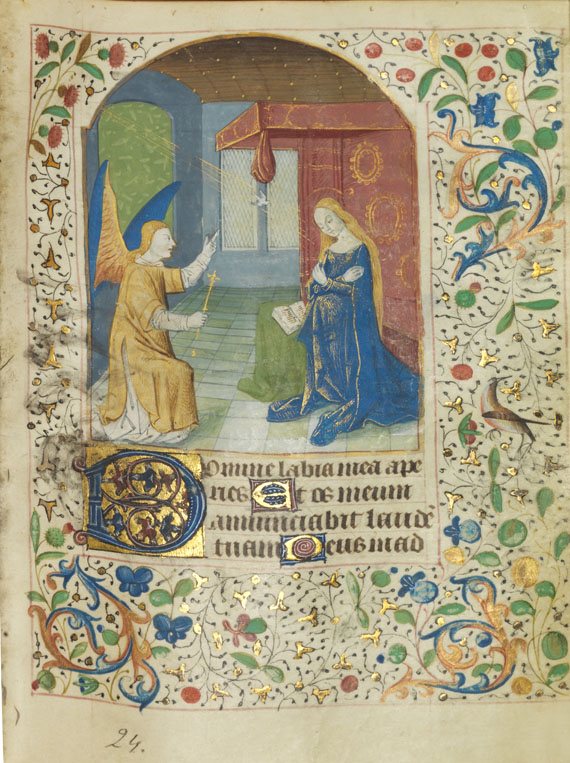 Domine labia mea ape
ries Et os meum
annunciabit laudē
tuam Deus in ad
24.